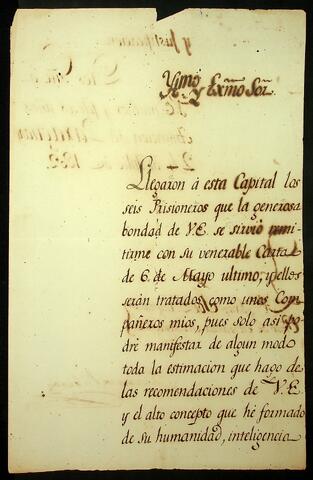 Yllmo y Exmo Sor
Llegaron á esta Capital los
seis Prisioneros que la generosa
bondad de V.E. se sirvió remi-
tirme con su venerable Carta
de 6 de Mayo ultimo, y ellos
serán tratados como unos Com-
pañeros mios, pues solo asi po-
dré manifestar de algun modo
toda la estimacion que hago de
las recomendaciones de V.E
y el alto concepto que hé formado
de su humanidad, inteligencia